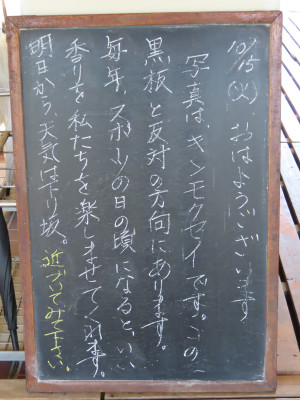 10/15(火) おはようございます
写真は、キンモクセイです。この
黒板と反対の方向にあります。
毎年、スポーツの日の頃になると、いい
香りを私たちを楽しませてくれます。
明日から、天気は下り坂。近づいてみて下さい。